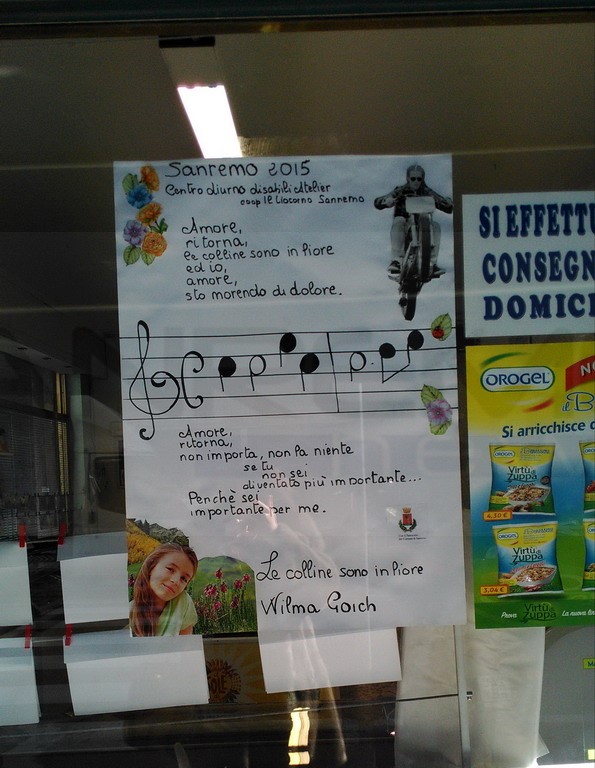 Sanremo 2015
Centro diurno disabili Atelier
coop il Giacomo Sanremo
Amore,
ritorna,
le colline sono in fiore
ed io,
amore,
sto morendo di dolore.
Amore,
ritorna,
non importa, non fa niente
se tu
non sei
diventato più importante...
Perchè sei
importante per me.
Le colline sono in fiore
Wilma Goich
SI EFFETTU
CONSEGN
DOMICI
OROGEL
NO
il B
Si arricchisce d
OROGEL
Virtù di
Zuppa
4,30 €
OROGEL
Virtù di
Zuppa
3,04 €
Prova Virtù di Zuppa La nuova lin